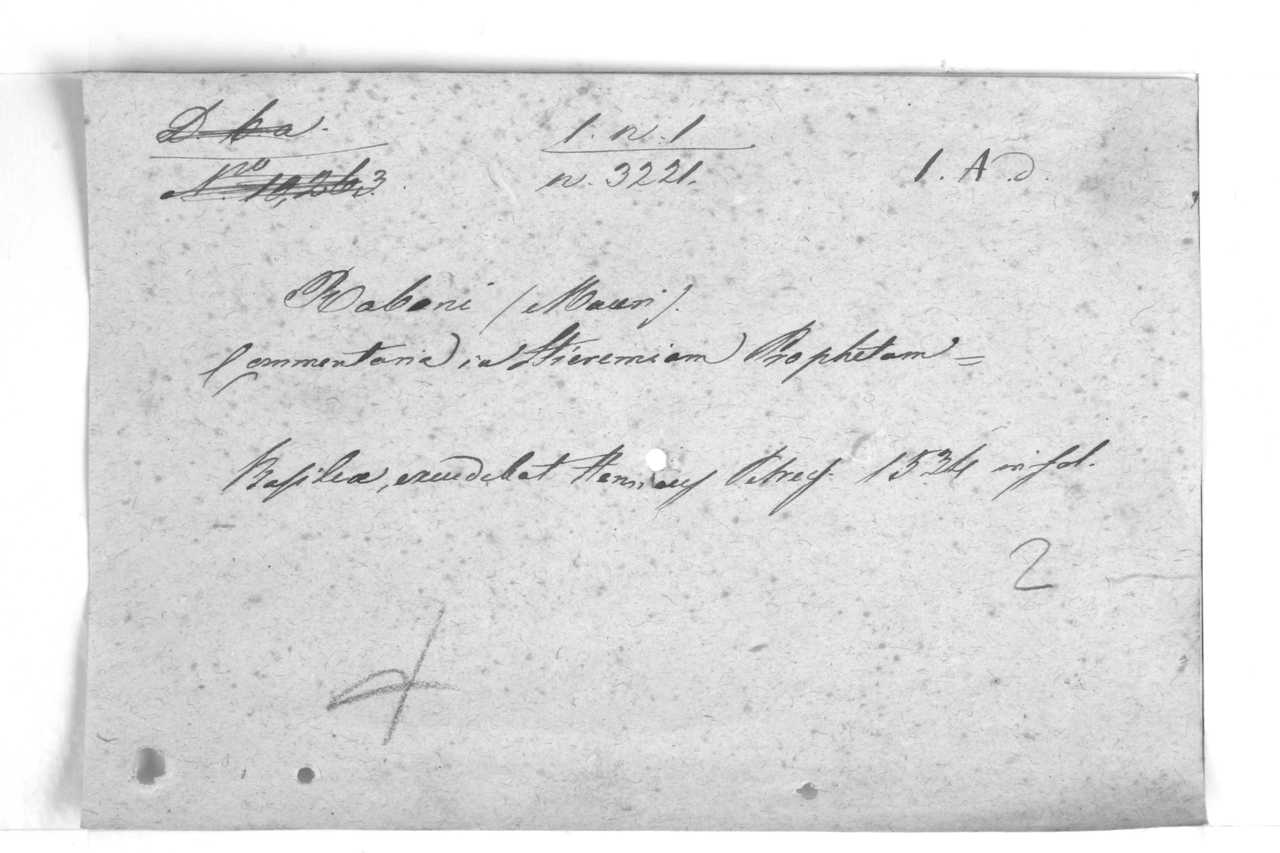 D. 6 a.
1. n. 1
N.ro 10,263.
n. 3221.
1. A d.
Rabani (Mauri).
Commentaria in Hieremiam Prophetam =
Basileæ, excudebat Henricus Petrus. 1534 in fol.
2